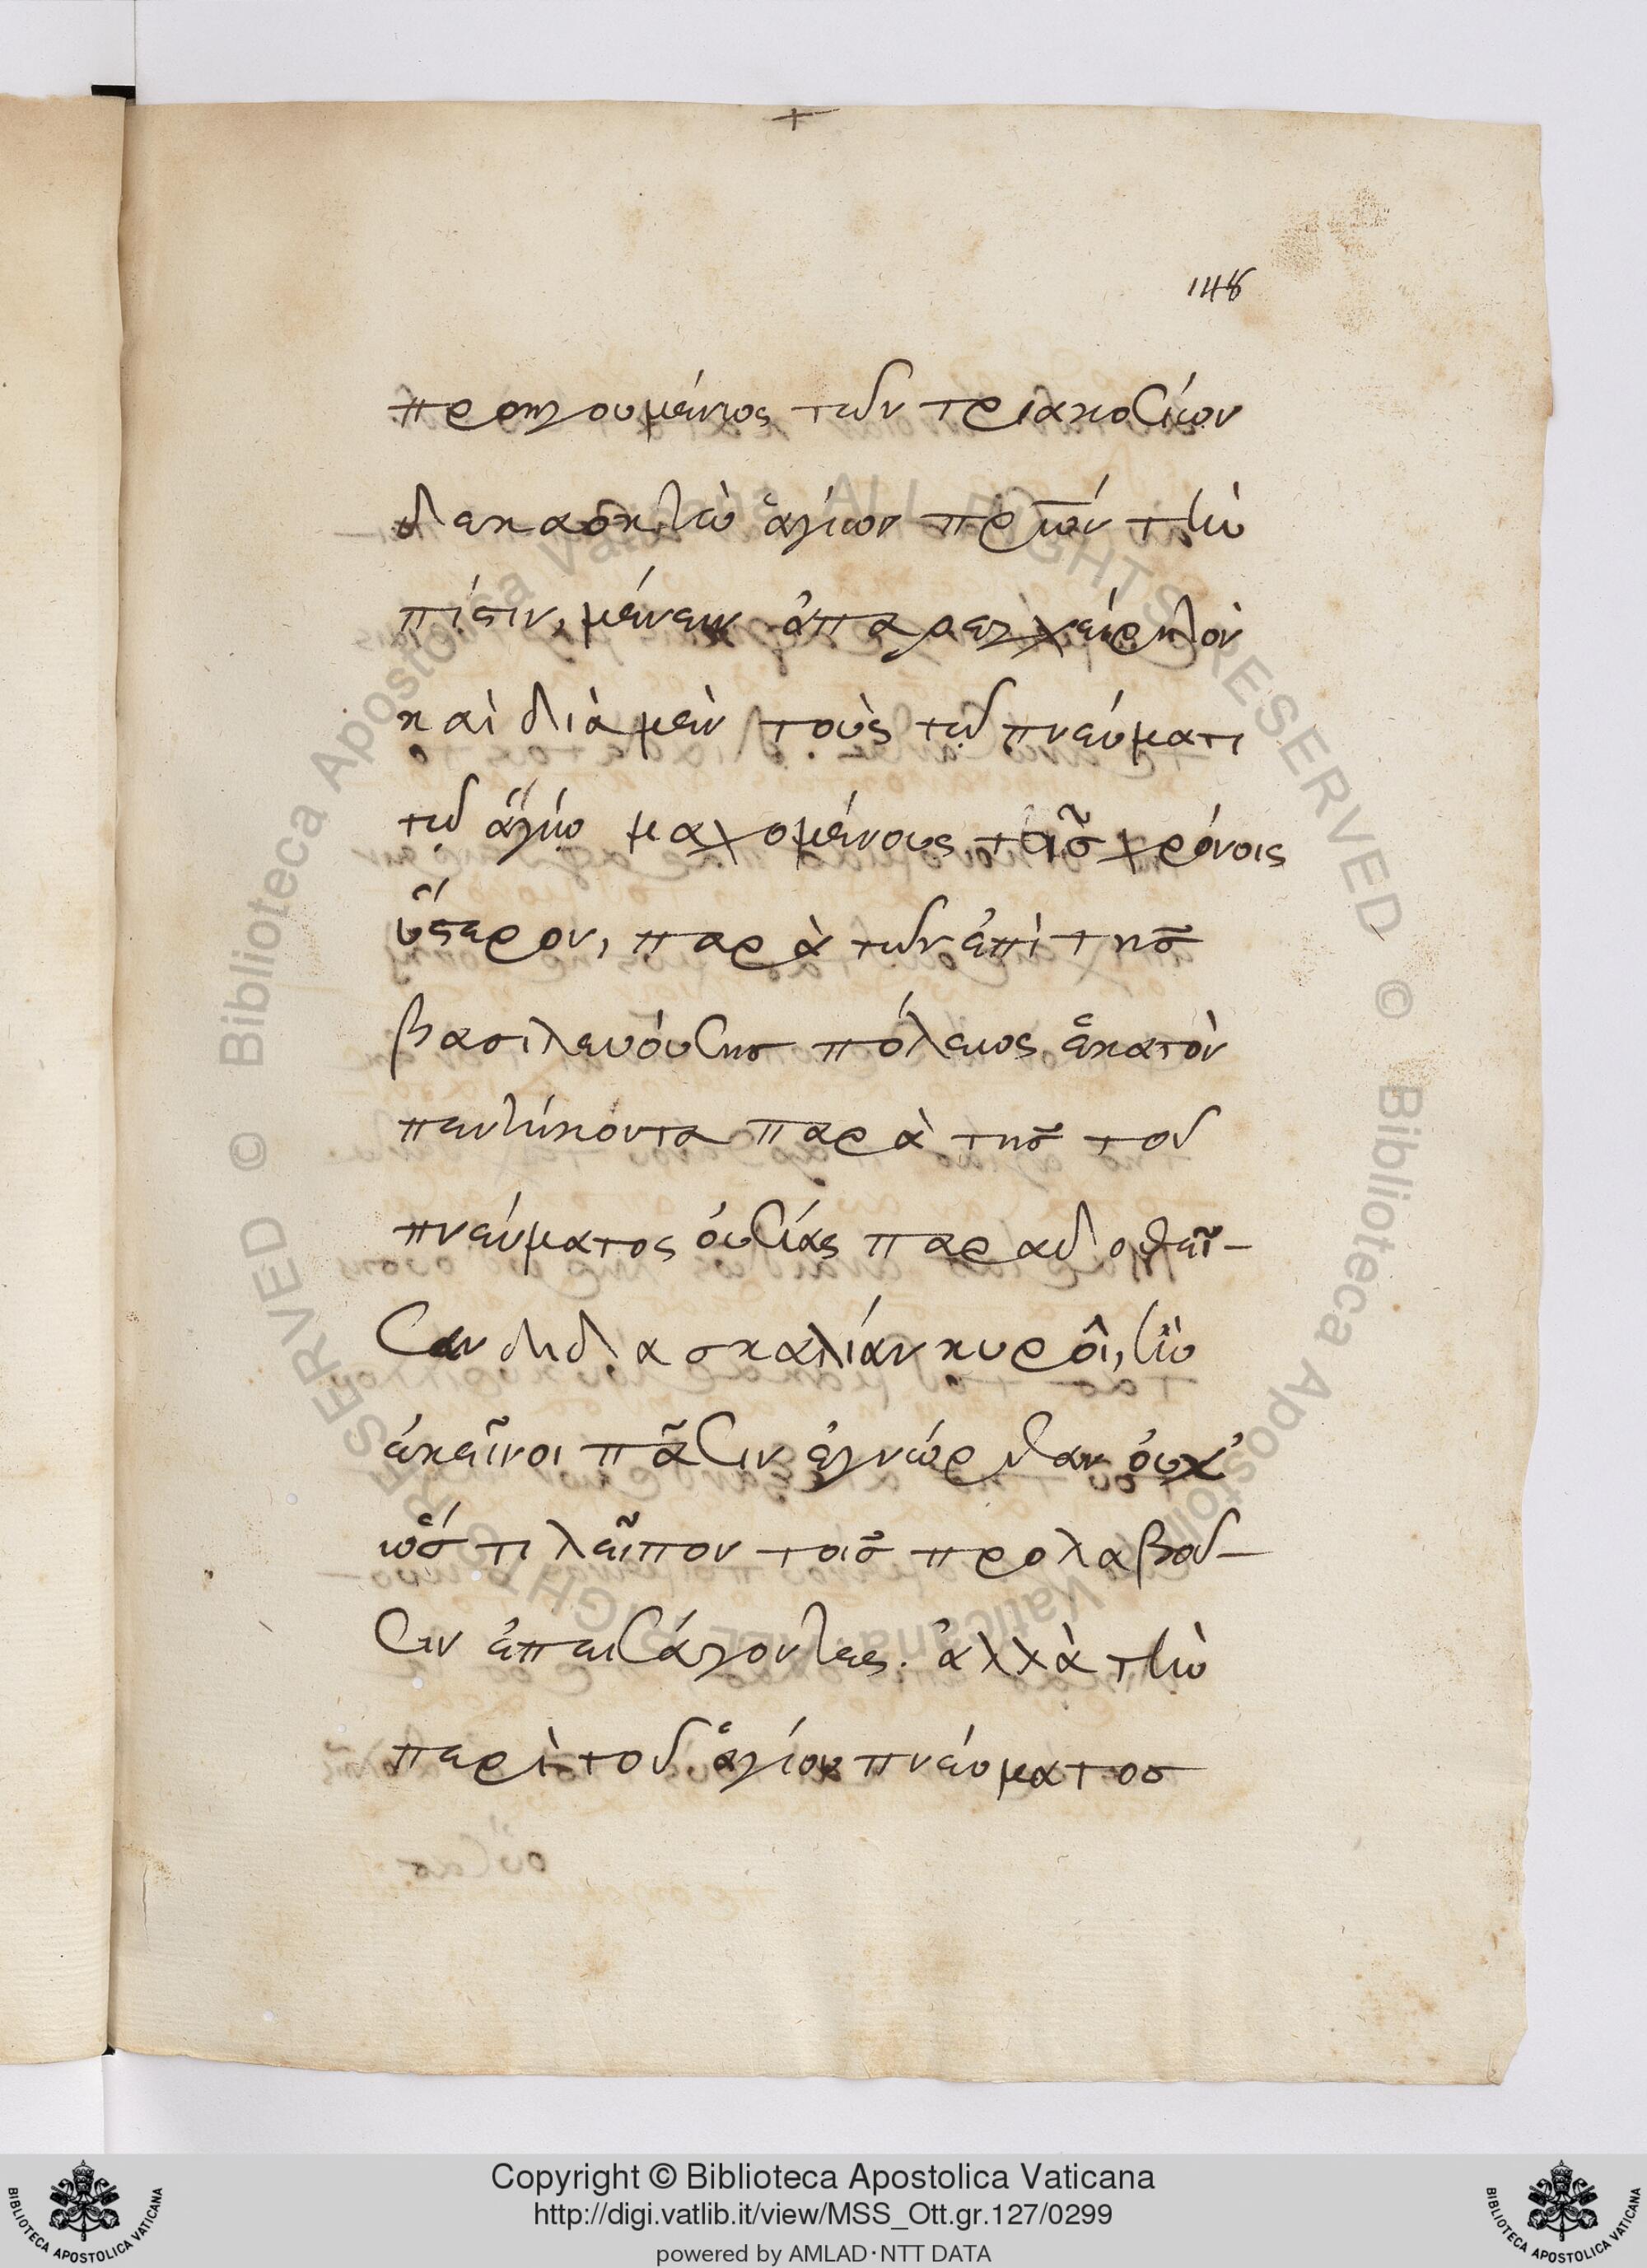 148
προηγουμένως τῶν τριακοσίων
δεκαοκτὼ ἁγίων πρων τὴν
πίστιν, μένειν ἀπαρεγχείρητον
καὶ διὰ μὲν τοὺς τῷ πνεύματι
τῷ ἁγίῳ μαχομένους τοῖς χρόνοις
ὕστερον, παρὰ τῶν ἐπὶ τῆς
βασιλευούσης πόλεως ἑκατὸν
πεντήκοντα παρὰ τῆς τοῦ
πνεύματος οὐσίας παραδοθεῖ-
σαν διδασκαλίαν κυροῖ, ἣν
ἐκεῖνοι πᾶσιν ἐγνώρισαν οὐχ
ὥς τι λεῖπον τοῖς προλαβοῦ-
σιν ἐπεισάγοντες. ἀλλὰ τὴν
περὶ τοῦ ἁγίου πνεύματος
Copyright © Biblioteca Apostolica Vaticana
http://digi.vatlib.it/view/MSS_Ott.gr.127/0299
powered by AMLAD·NTT DATA
BIBLIOTECA APOSTOLICA VATICANA
BIBLIOTECA APOSTOLICA VATICANA